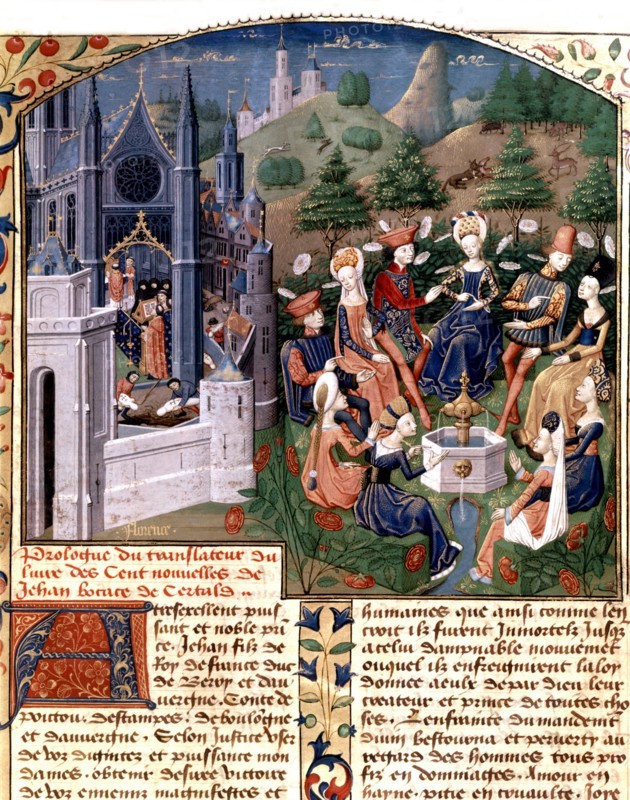 Florence
Prologue du translateur du
livre des Cent nouvelles de
Jehan bocace de Certald
A tresexcellent puis
sant et noble pri
ce. Jehan filz de
Roy de france duc
de Berry et dau
uergne. Conte de
poitou. destampes. de boulogne
et dauuergne. Selon Justice vser
de voz dignitez et puissance mon
daines. obtenir desiree victoire
de voz ennemiz magnifestes et
humaines que ainsi comme len
croit ilz furent Inmortelz Jusqz
a celui dampnable mouuement
ouquel ilz enfreignirent la loy
donnee a eulx de par dieu leur
createur et prince de toutes cho
ses. Lenfrainte du mandemt
diuin bestourna et peruerty au
regard des hommes tous pro
fiz en dommages. Amour en
hayne. pitie en cruaulte. Joye